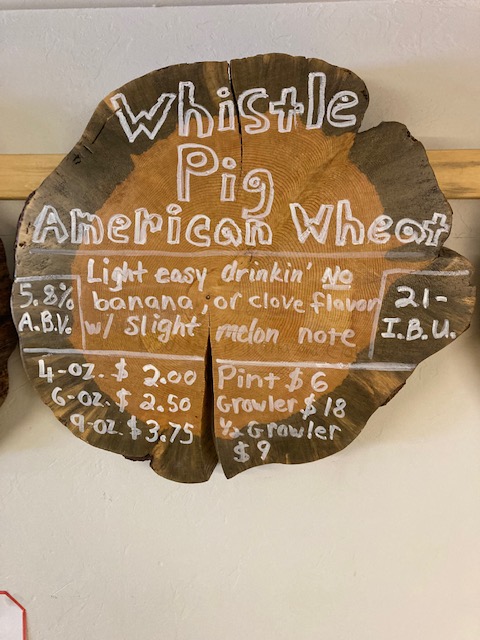 Whistle
Pig
American Wheat
Light easy drinkin' NO
banana, or clove flavor
w/ slight melon note
5.8%
A.B.V.
21-
I.B.U.
4-oz. $ 2.00
6-oz. $ 2.50
9-oz. $3.75
Pint $6
Growler $18
1/2 Growler
$9